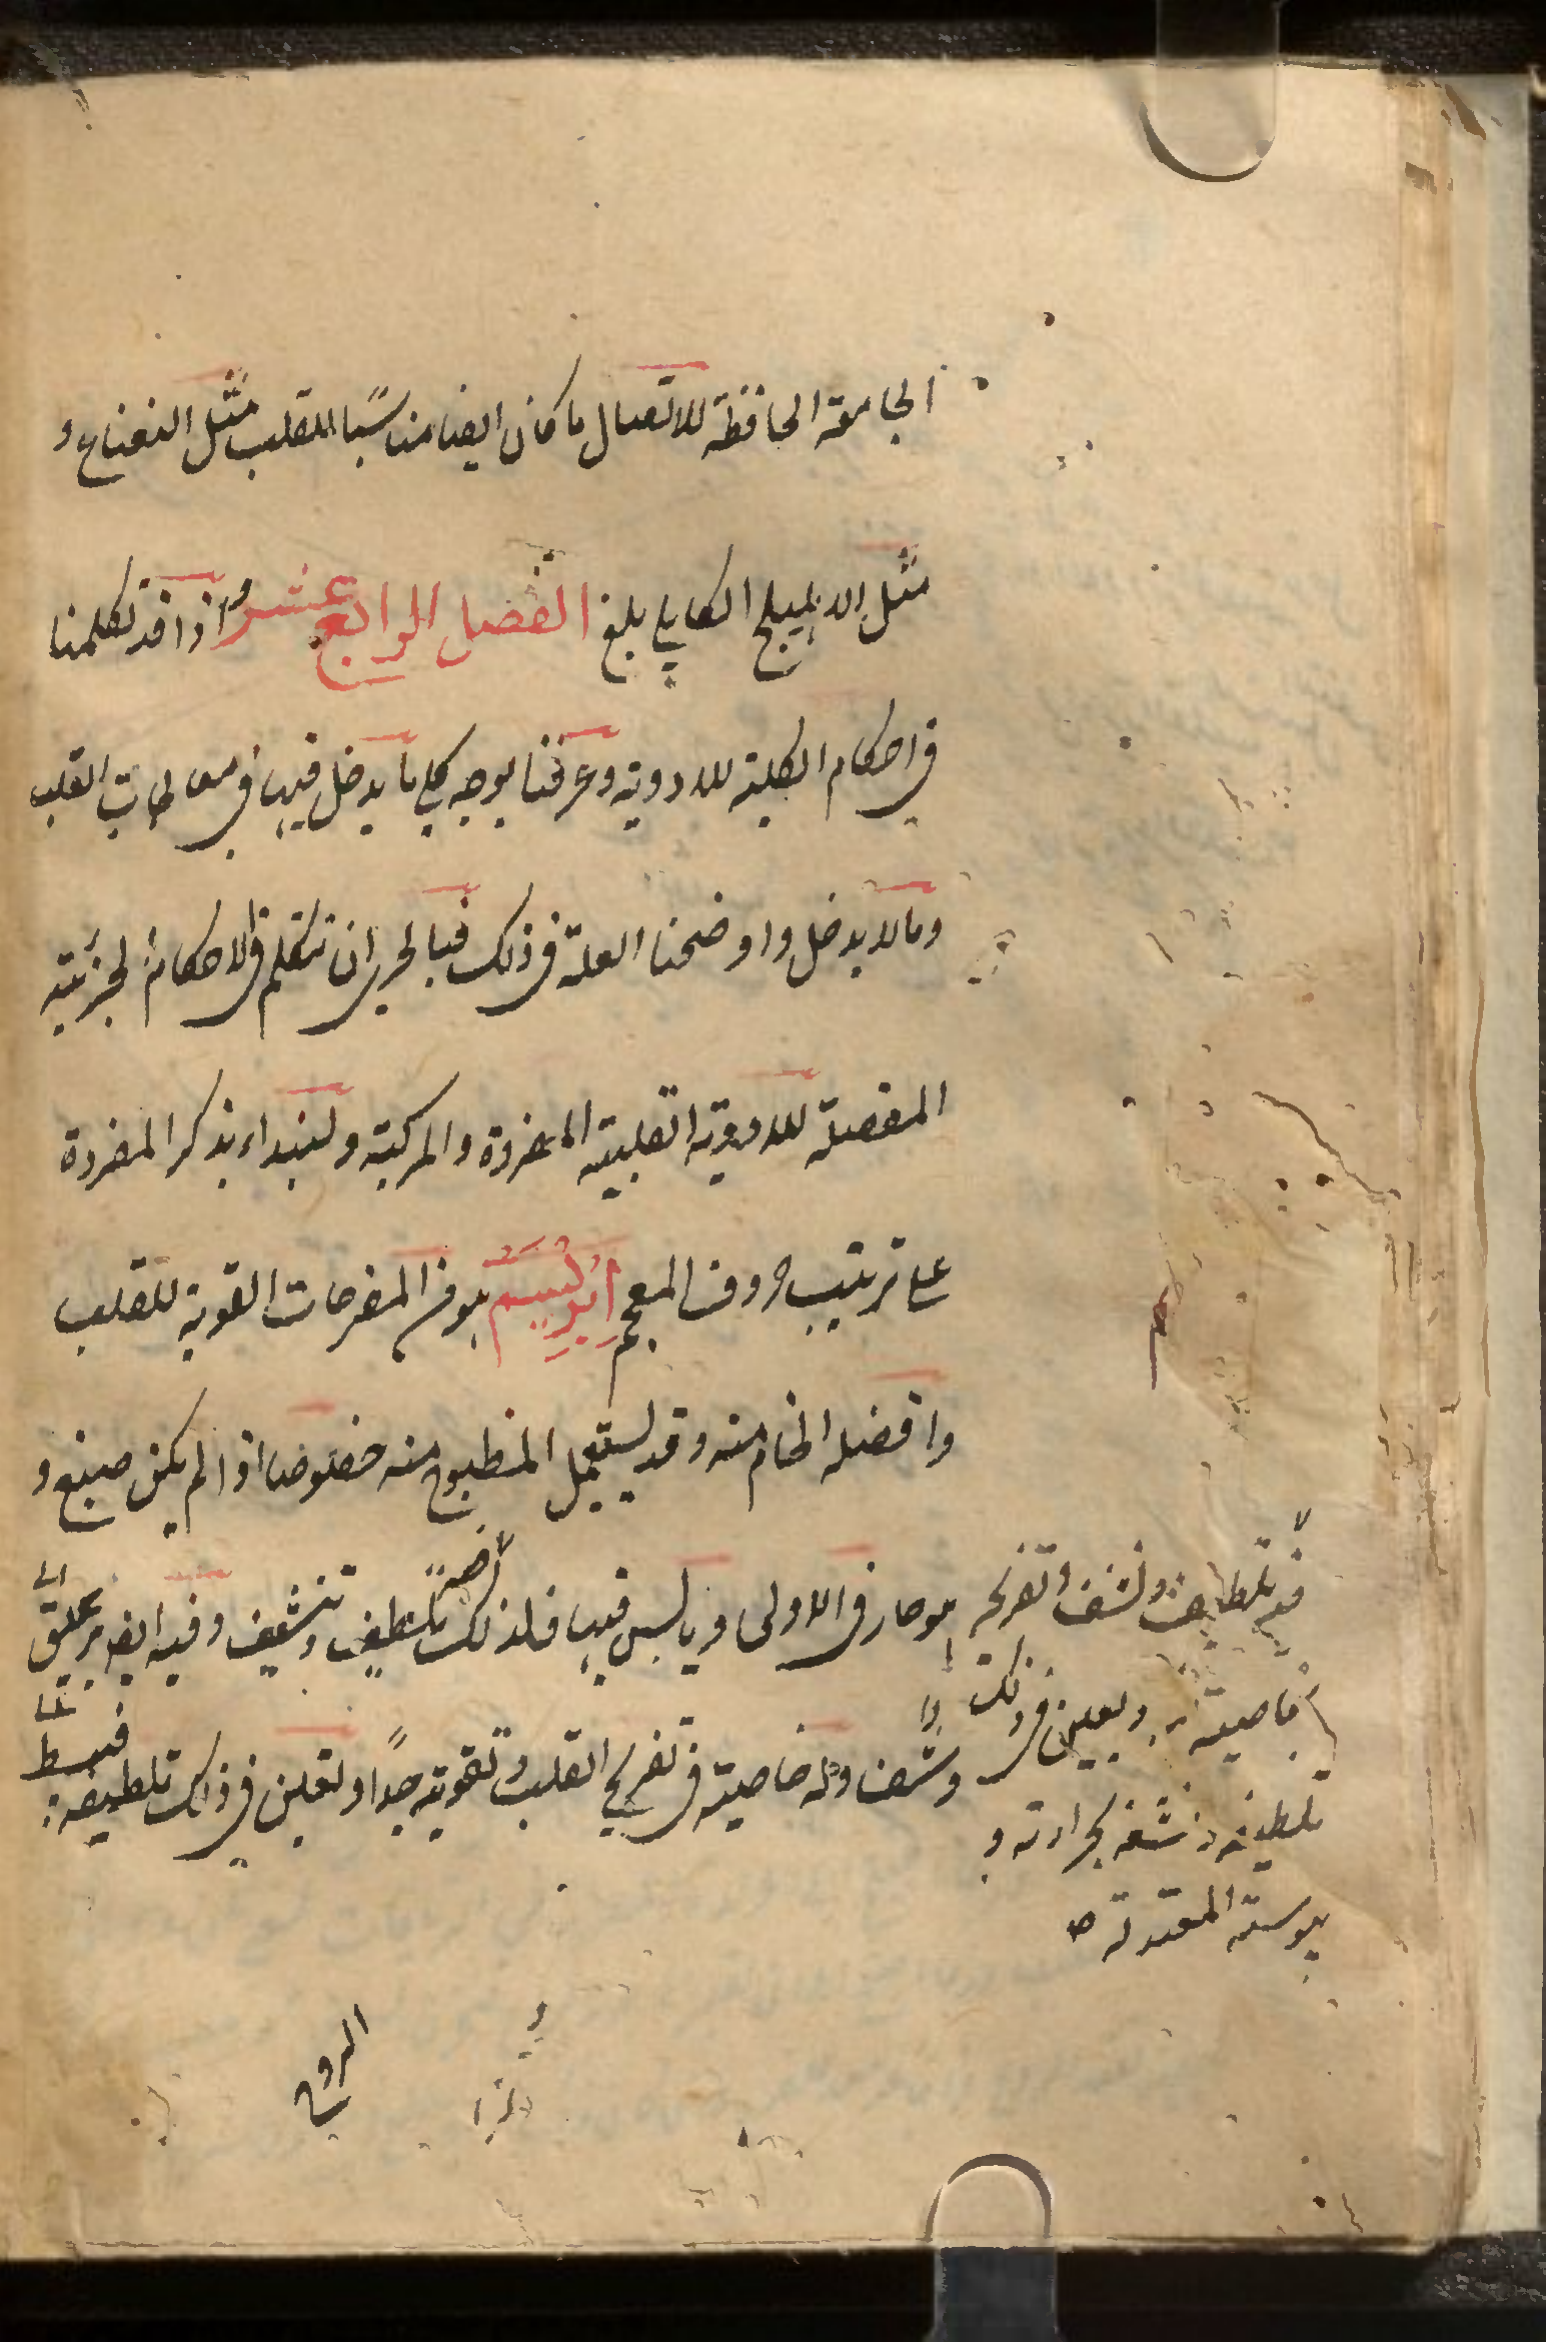 الجامعة الحافظة للاتصال ما كان ايضا مناسبًا للقلب مثل النعناع و
مثل الاهليلج الكابلي بلغ الفصل الرابع عشر واذا قد تكلمنا
في احكام الكلية للادوية وعرفنا بوجه كلي ما يدخل فيها في معالجات القلب
وما لا يدخل واوضحنا العلة في ذلك فبالحري ان نتكلم في الاحكام الجزئية
المفصلة للادوية القلبية المفردة والمركبة ولنبداء بذكر المفردة
على ترتيب حروف المعجم ابريسم هو من المفرحات القوية للقلب
وافضله الخام منه وقد يستعمل المطبوخ منه خصوصا اذا لم يكن صبغ و
هو حار في الاولى ويابس فيها فلذلك تلطيف وتنشيف وفيه ايضا بريق
ونشف وله خاصية في تفريح القلب وتقويته جدًا ولتعين في ذلك تلطيفه فيبسط
فيه تلطيف ونشف وتفريح
بخاصية ويعين في ذلك
تلطيفه ونشفه بحرارته و
يبوسته المعتدلة
الروح